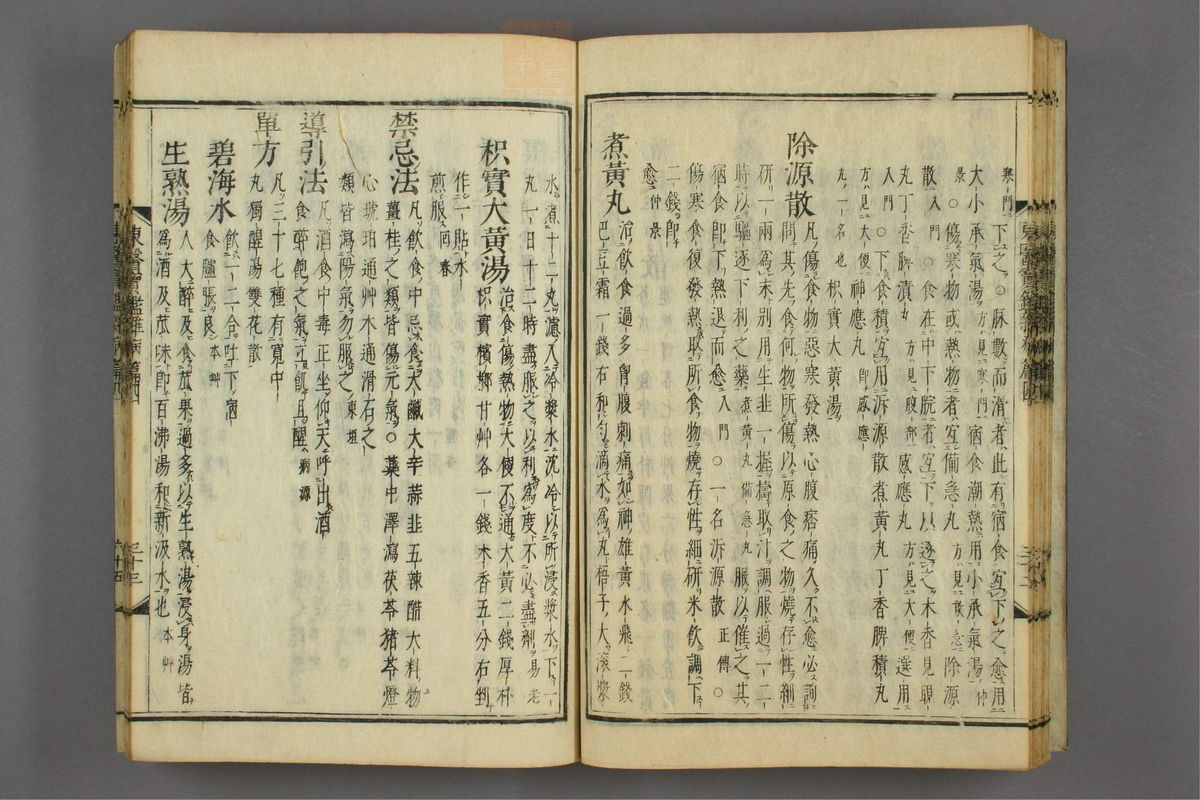 寒門下之○脉數而滑者此有宿食宜下之愈用
大小承氣湯方見寒門宿食潮熱用小承氣湯仲
景○傷寒物或熱物者宜備急丸方見救急除源
散入門○食在中下脘者宜下以逐之木香見睍
丸丁香脾積丸方見腹部感應丸方見大便選用
入門○下食積宜用泝源散煮黃丸丁香脾積丸
方見大人神應丸即感應
丸一名也枳實大黃湯
除源散凡傷食物惡寒發熱心腹痞痛久不愈必詢
問其先食何物所傷以原食之物燒存性細
研一兩爲末別用生韭一握擣取汁調服過一二
時以驅逐下利之藥煮黃丸備急丸服以催之其
宿食即下熱退而愈入門○一名泝源散正傳○
傷寒食復發熱取所食物燒存性細研米飲調下
二錢即
愈仲景
煮黃丸治飲食過多胷腹刺痛如神雄黃水飛二錢
巴豆霜一錢右和勻滴水爲丸梧子大滾漿
水煮十二丸濾入冷漿水沈冷以所浸漿水下一
丸一日十二時盡服之以利爲度不必盡劑易老
枳實大黃湯治食傷熱物大便不通大黃二錢厚朴
枳實檳榔甘艸各一錢木香五分右剉
作一貼水
煎服回春
禁忌法凡飲食中忌食大鹹大辛蒜韭五辣醋大料物
薑桂之類皆傷元氣○藥中澤瀉茯苓猪苓燈
心琥珀通艸木通滑石之
類皆瀉陽氣勿服之東垣
導引法凡酒食中毒正坐仰天呼出酒
食醉飽之氣立飢且醒病源
單方凡三十七種有寬中
丸獨醒湯雙花散
碧海水飲一二合吐下宿
食臚張良本艸
生熟湯人大醉及食苽果過多以生熟湯浸身湯皆
爲酒及苽味即百沸湯和新汲水也本艸